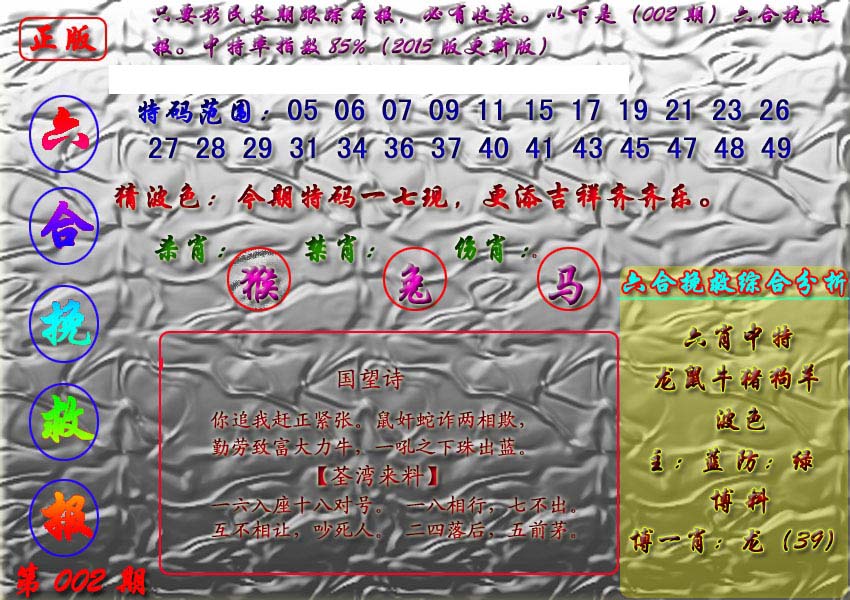 正版
只要彩民长期跟踪本报，必有收获。以下是（002期）六合挽救
报。中特率指数85%（2015版更新版）
六
合
挽
救
报
第002期
特码范围：05 06 07 09 11 15 17 19 21 23 26
27 28 29 31 34 36 37 40 41 43 45 47 48 49
猜波色：今期特码一七现，更添吉祥齐齐乐。
杀肖：猴 禁肖：兔 伤肖：马
国望诗
你追我赶正紧张。鼠奸蛇诈两相欺，
勤劳致富大力牛，一吼之下珠出蓝。
【荃湾来料】
一六入座十八对号。 一八相行，七不出。
互不相让，吵死人。 二四落后，五前茅。
六合挽救综合分析
六肖中特
龙鼠牛猪狗羊
波色
主：蓝防：绿
博料
博一肖：龙（39）